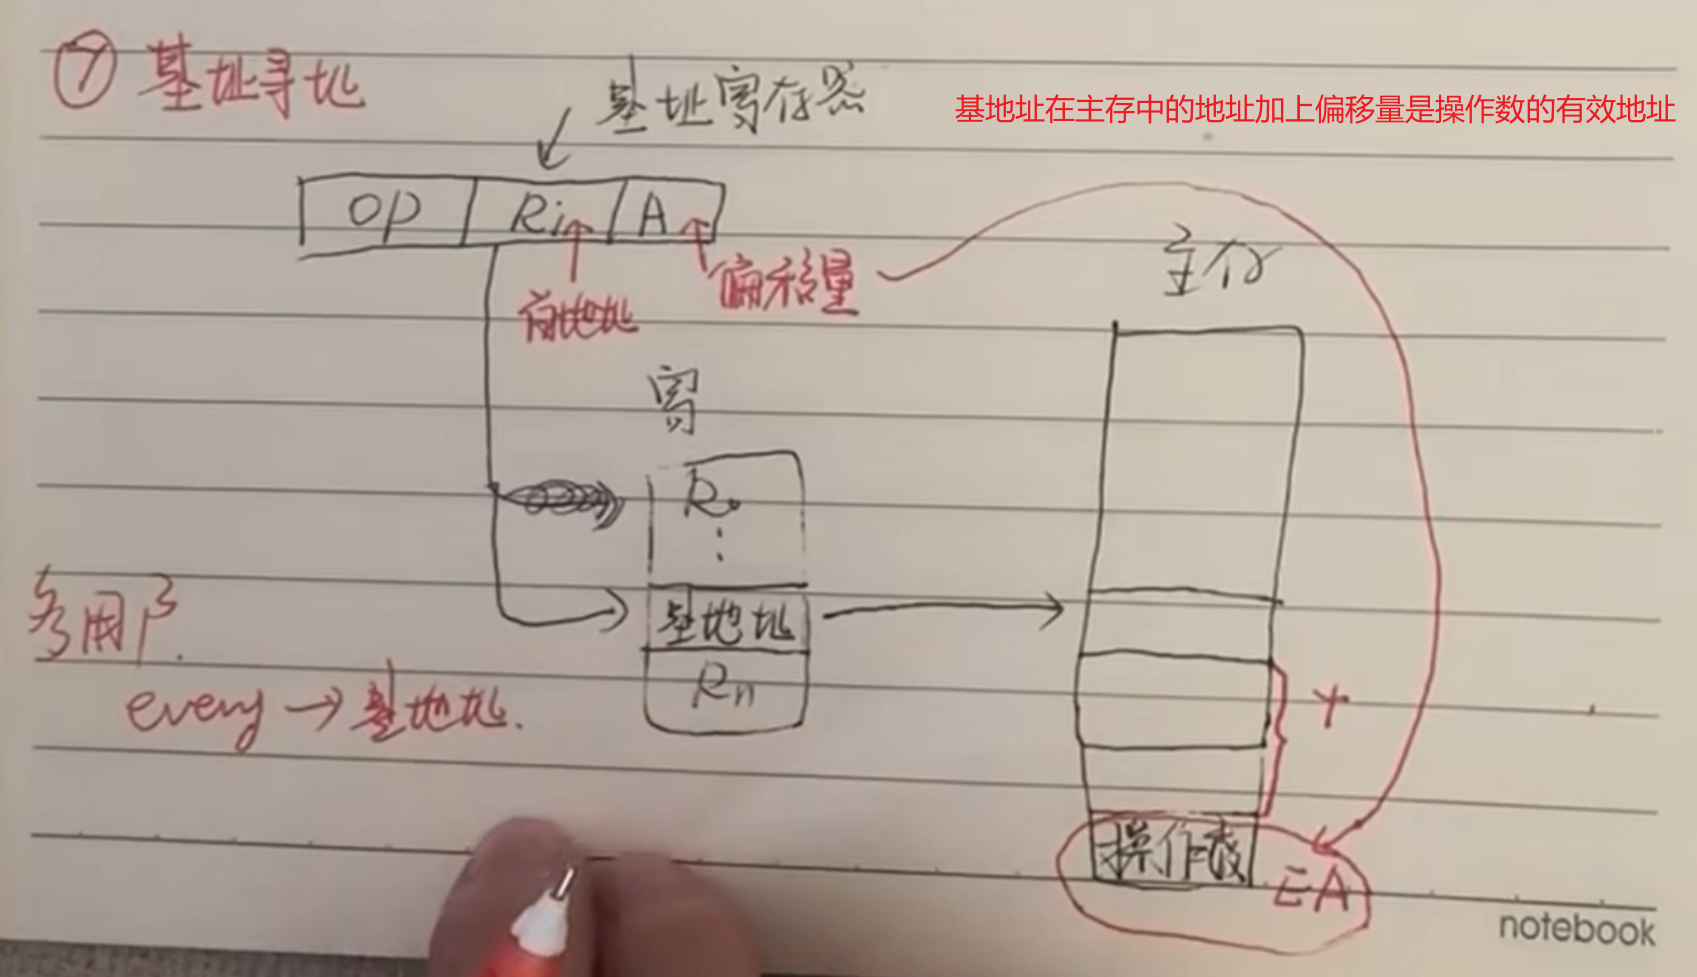 ⑦ 基址寻址
基址寄存器
基地址在主存中的地址加上偏移量是操作数的有效地址
OP Ri A
偏移量
主存
寄
R0
⋮
基地址
Rn
多用户.
every → 基地址.
操作数 EA
notebook